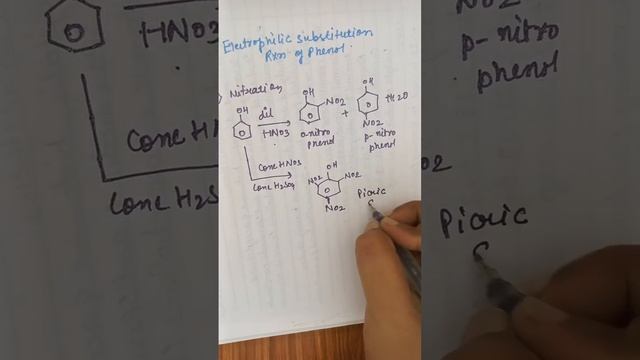 Electrophilic Substitution
Rxn of Phenol.
) Nitration
OH
dil
HNO3
OH
NO2
o-nitro
phenol
+
OH
NO2
p-nitro
phenol
+H2O
Conc HNO3
Conc H2SO4
OH
NO2
NO2
NO2
Picric
HNO3
Conc H
Conc H2S
NO2
p-nitro
phenol
02
Picric